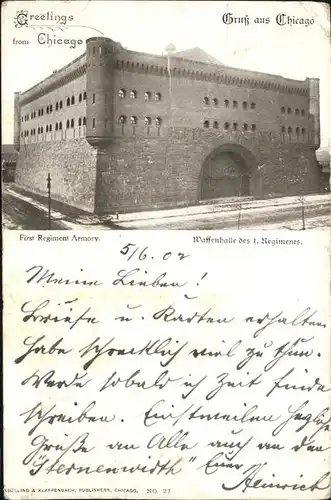 Greetings
from Chicago
Gruß aus Chicago
First Regiment Armory.
Waffenhalle des 1. Regiments.
5/6. 02
Meine Lieben!
Briefe u. Karten erhalten,
habe schrecklich viel zu thun.
Werde sobald ich Zeit finde
schreiben. Einstweilen herzliche
Grüße an Alle auch an den
"Sternenwirth" Euer
Heinrich
KOELLING & KLAPPENBACH, PUBLISHERS, CHICAGO. NO. 27